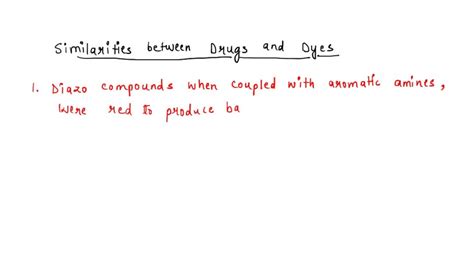 Similarities between Drugs and Dyes
1. Diazo compounds when coupled with aromatic amines,
were red to produce ba